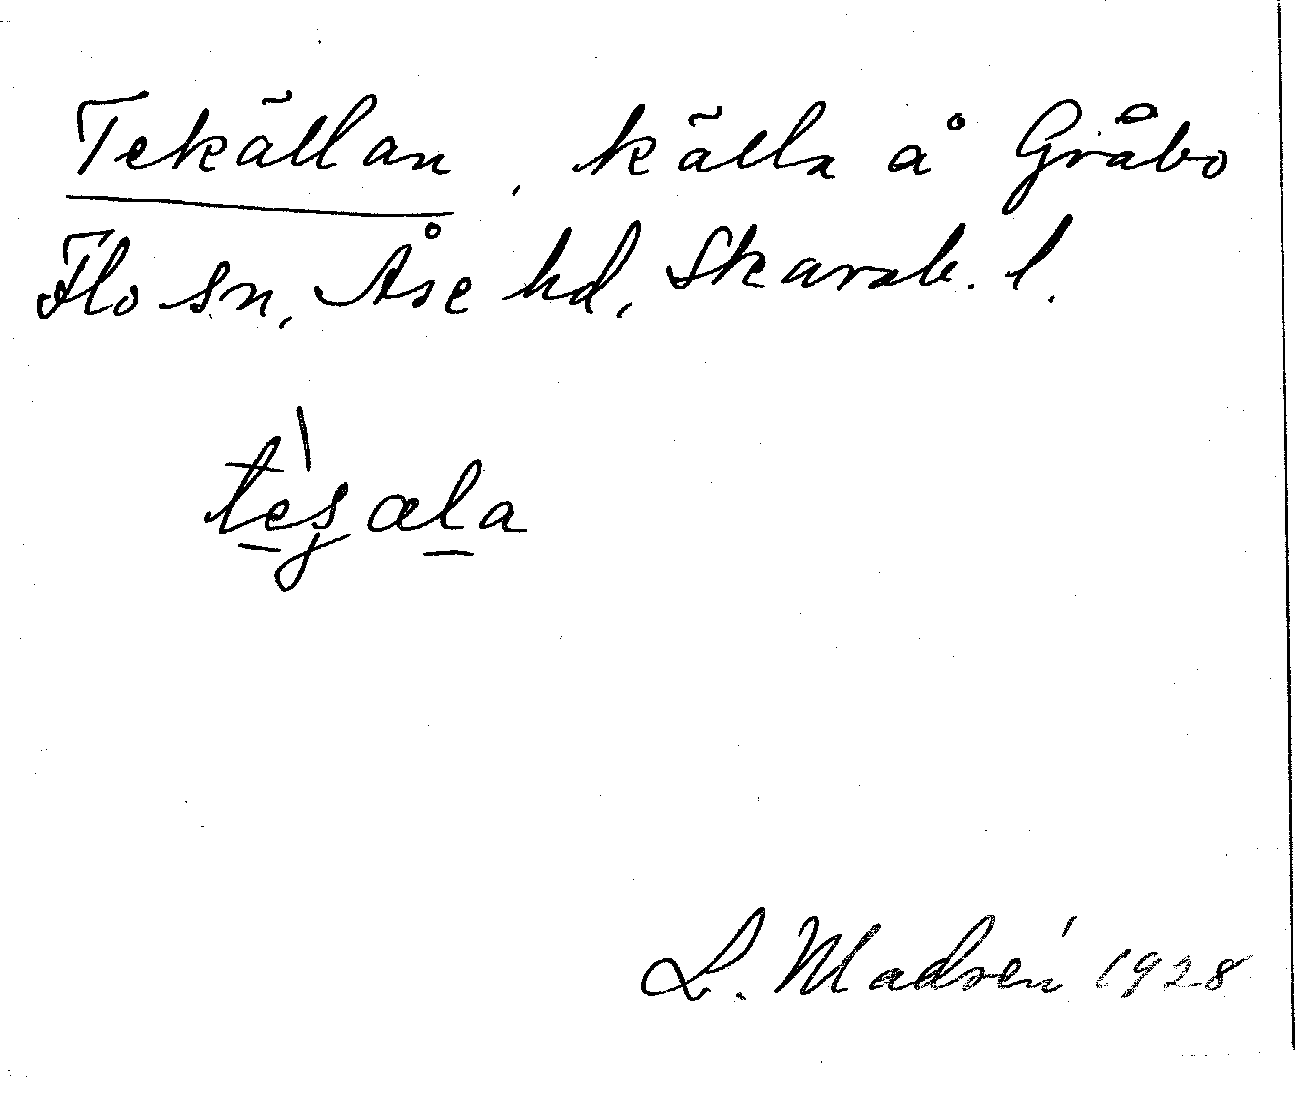 Tekällan, källa å Gråbo
Flo sn, Åse hd, Skarab. l.
tèʂæla
L. Madsén 1928